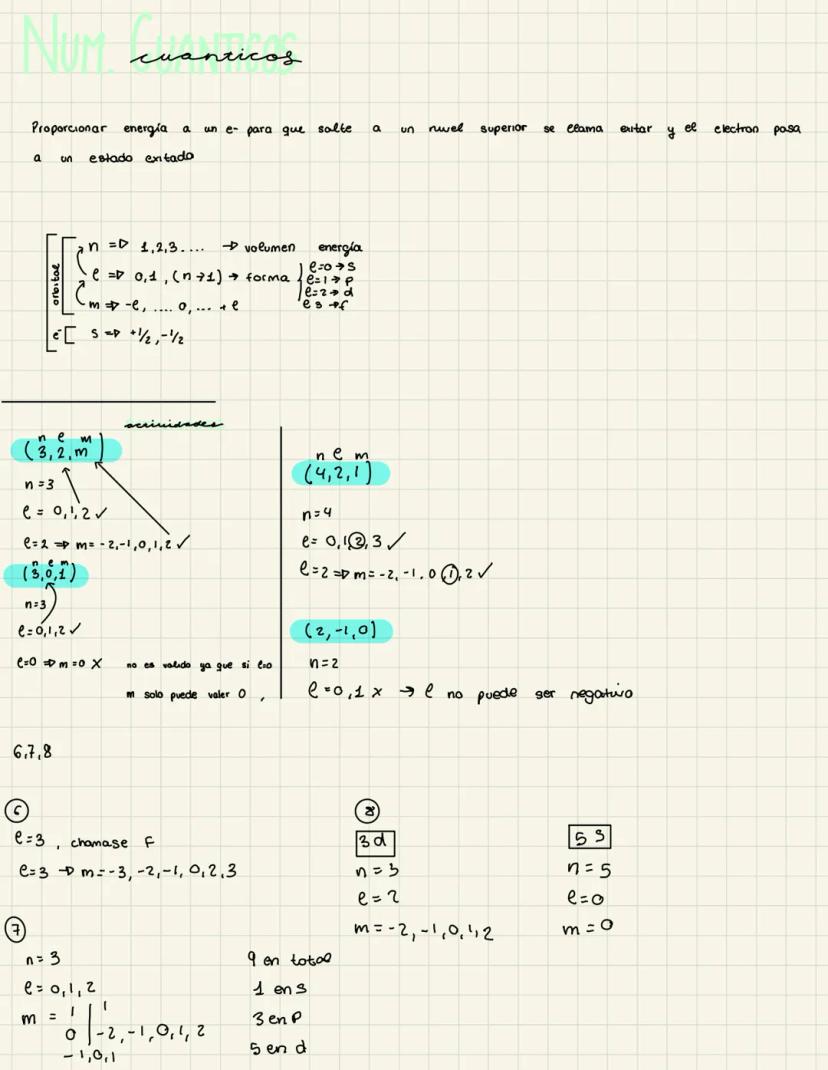 NUM. CUANTICOS
cuanticos
Proporcionar energía a un e- para que salte a un nuvel superior se llama exitar y el electron pasa
a un estado exitado
orbital
n => 1,2,3.... → volumen energía
l => 0,1,(n→1) → forma
l=0→s
l=1→p
l=2→d
l 3→f
m => -l, .... 0,... +l
e- [ s => +1/2,-1/2
acrividades
n l m
(3,2,m)
n=3
l = 0,1,2 ✓
l=2 => m= -2,-1,0,1,2 ✓
n l m
(3,0,1)
n=3
l=0,1,2 ✓
l=0 => m=0 X no es valido ya que si l=0
m solo puede valer 0 ,
n l m
(4,2,1)
n=4
l= 0,1,2,3 ✓
l=2 => m=-2,-1,0,1,2 ✓
(2,-1,0)
n=2
l=0,1 x → l no puede ser negativo
6,7,8
6
l=3 , chamase F
l=3 → m=-3,-2,-1,0,2,3
7
n=3
l=0,1,2
m = 1 | 1
0 | -2,-1,0,1,2
-1,0,1
9 en total
1 en s
3 en P
5 en d
8
3d
n=3
l=2
m=-2,-1,0,1,2
5s
n=5
l=0
m=0